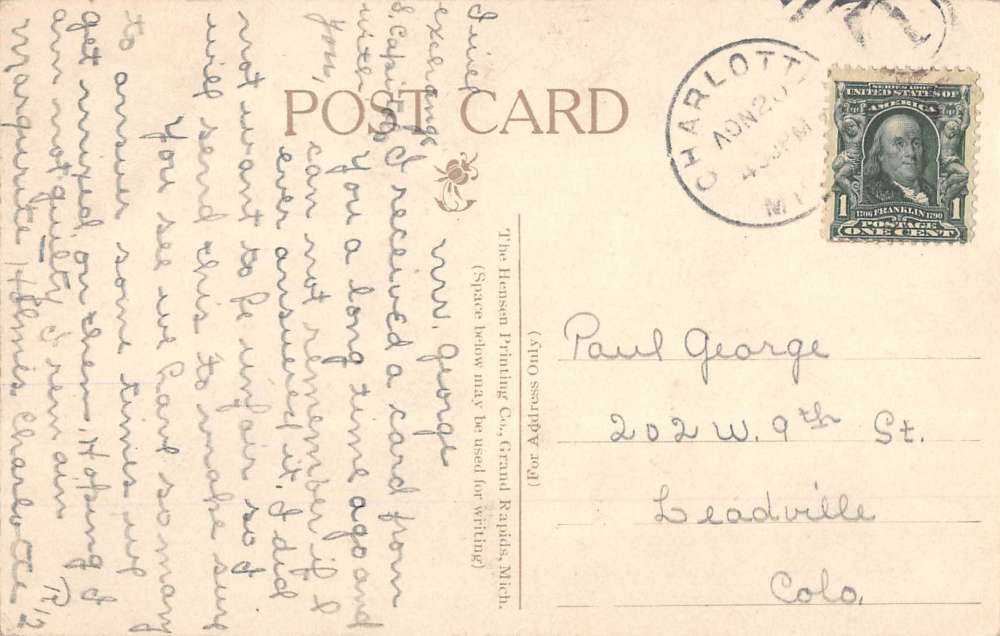 POST CARD
CHARLOTT
NOV 20
PM
MI
SERIES 1902
UNITED STATES OF
AMERICA
1706 FRANKLIN 1790
1 POSTAGE 1
ONE CENT
The Hensen Printing Co., Grand Rapids, Mich.
(Space below may be used for writing)
(For Address Only)
Paul George
202 W. 9th St.
Leadville
Colo.
I will
exchange
capitols
with
you,
Mr. George
I received a card from
You a long time ago and
can not remember if I
ever answered it. I did
not want to be unfair so I
will send this to make sure
You see we have so many
to answer some times we
get mixed on them. Hoping I
am not guilty I remain
Marguerite Holmes Charlotte